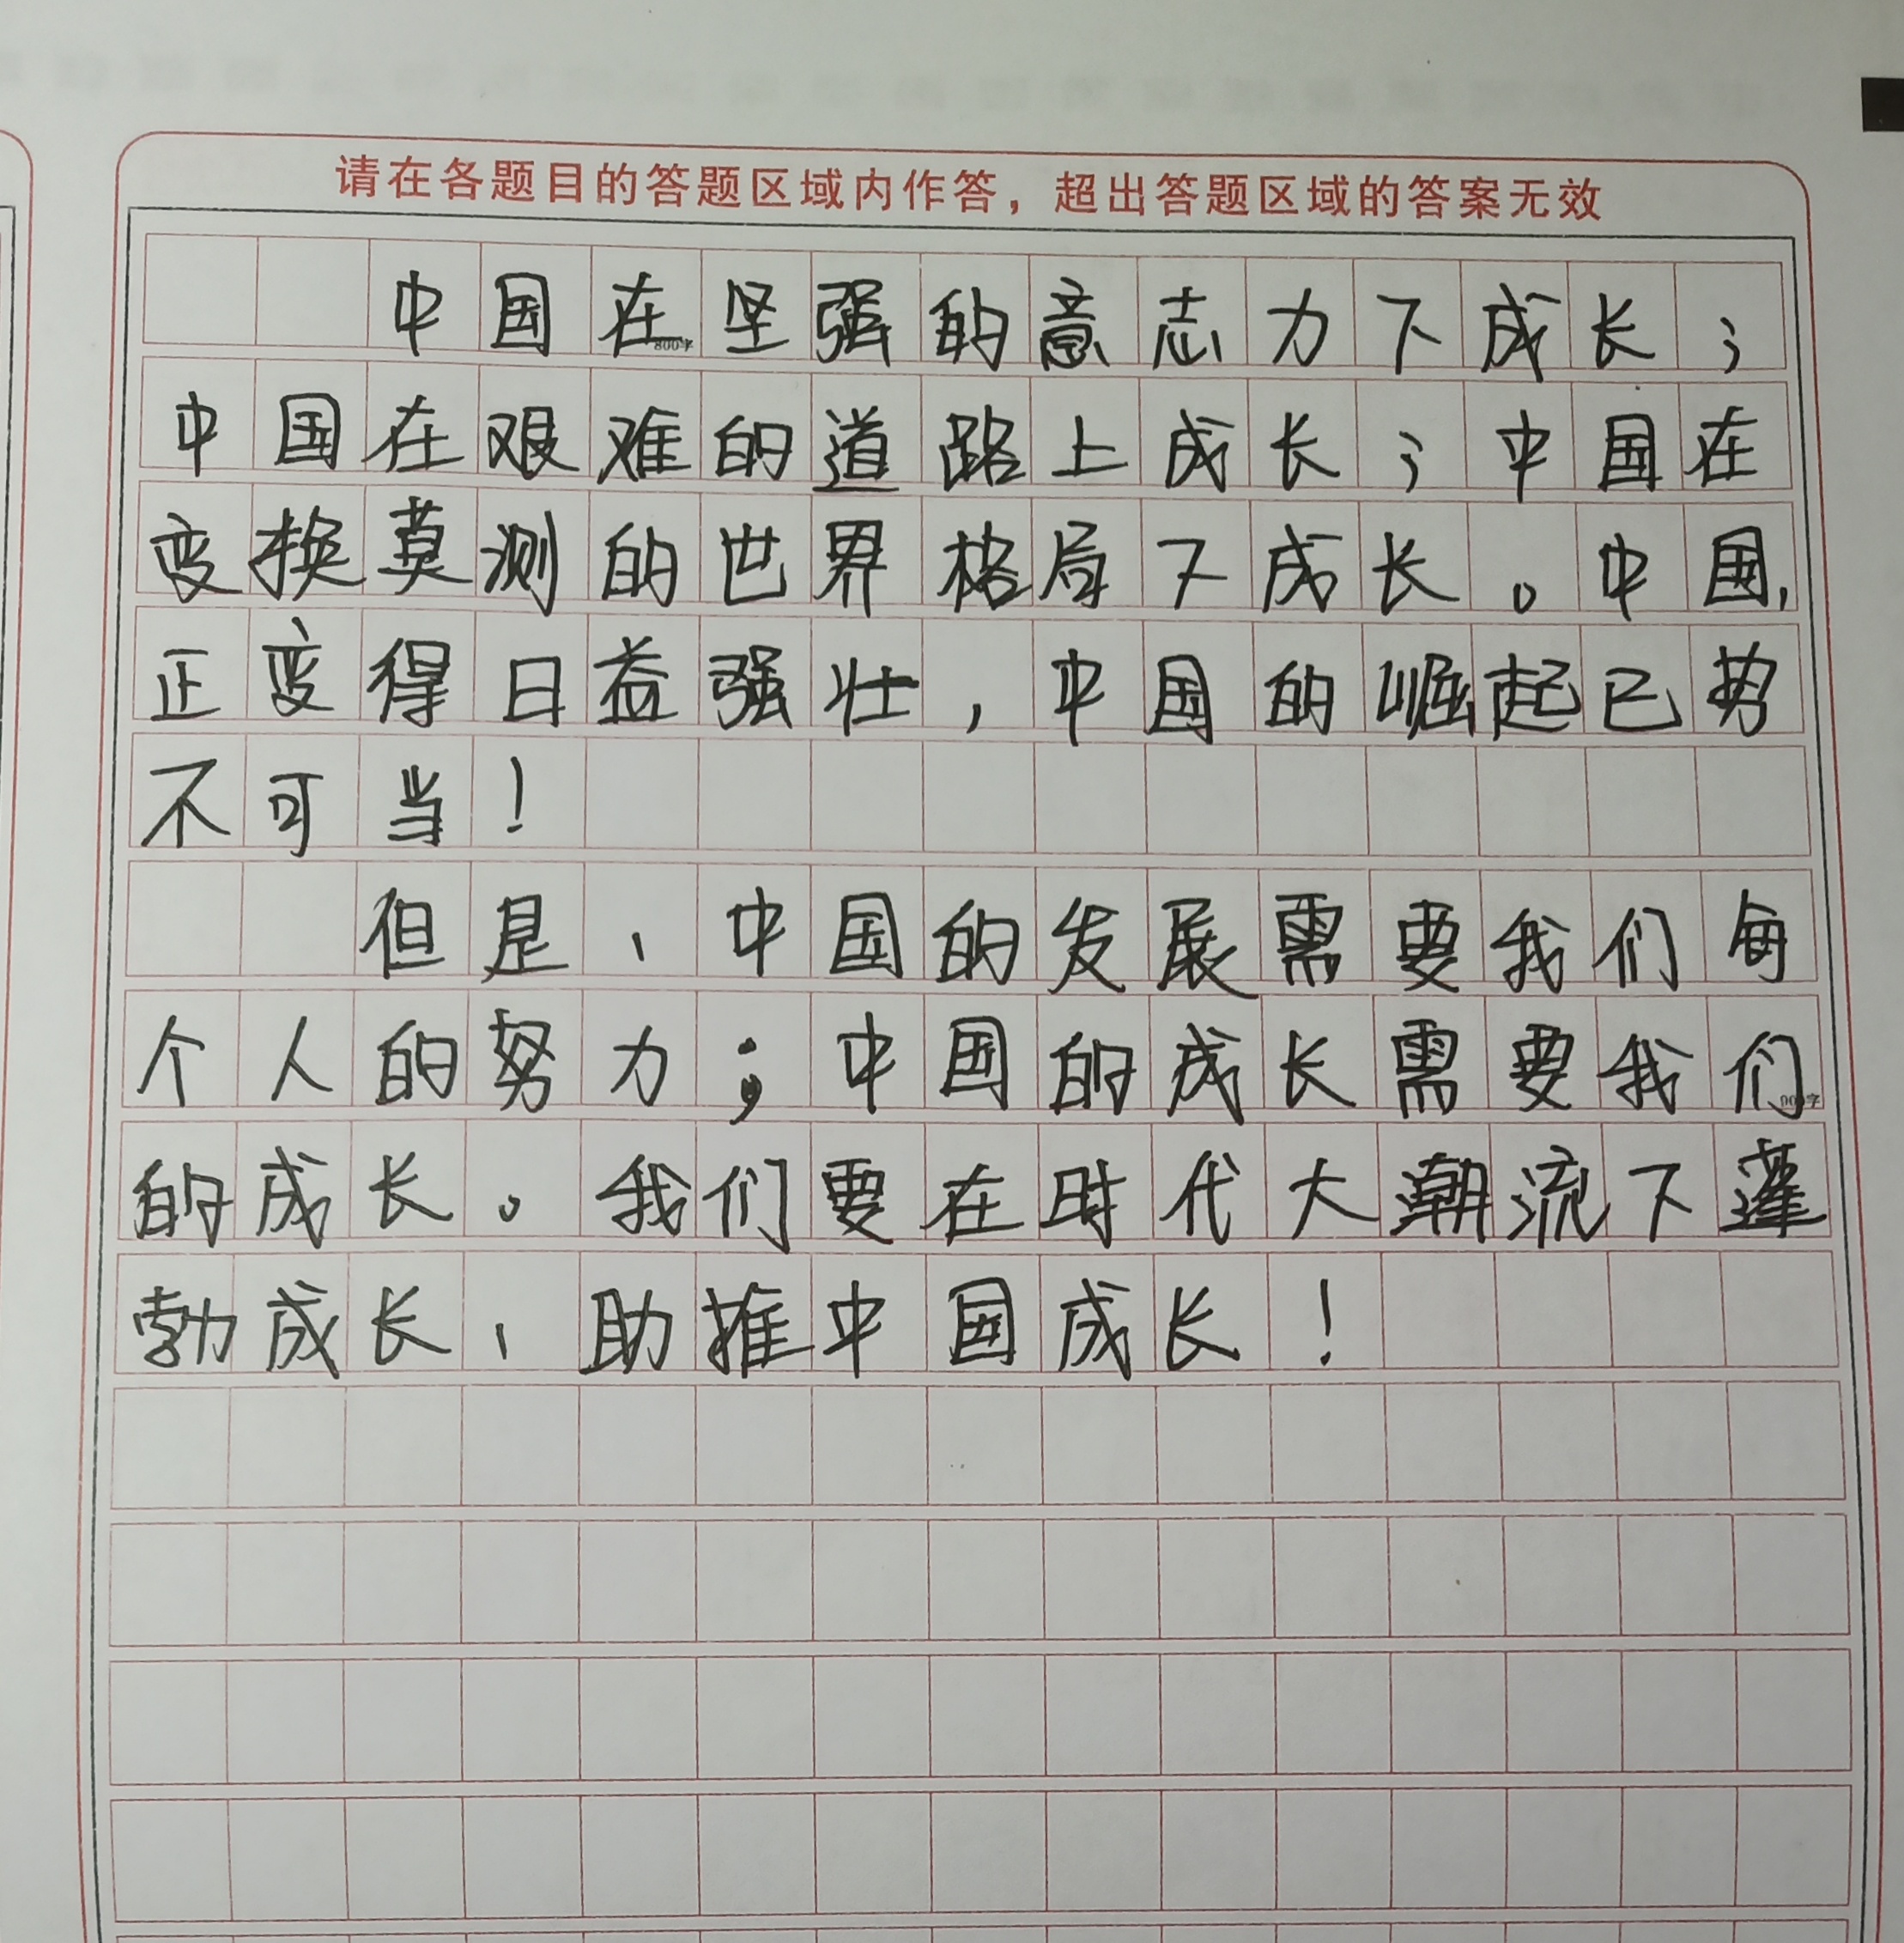 请在各题目的答题区域内作答，超出答题区域的答案无效
中国在坚强的意志力下成长；
800字
中国在艰难的道路上成长；中国在
变换莫测的世界格局下成长。中国，
正变得日益强壮，中国的崛起已势
不可当！
但是，中国的发展需要我们每
个人的努力；中国的成长需要我们
的成长。我们要在时代大潮流下蓬
勃成长，助推中国成长！